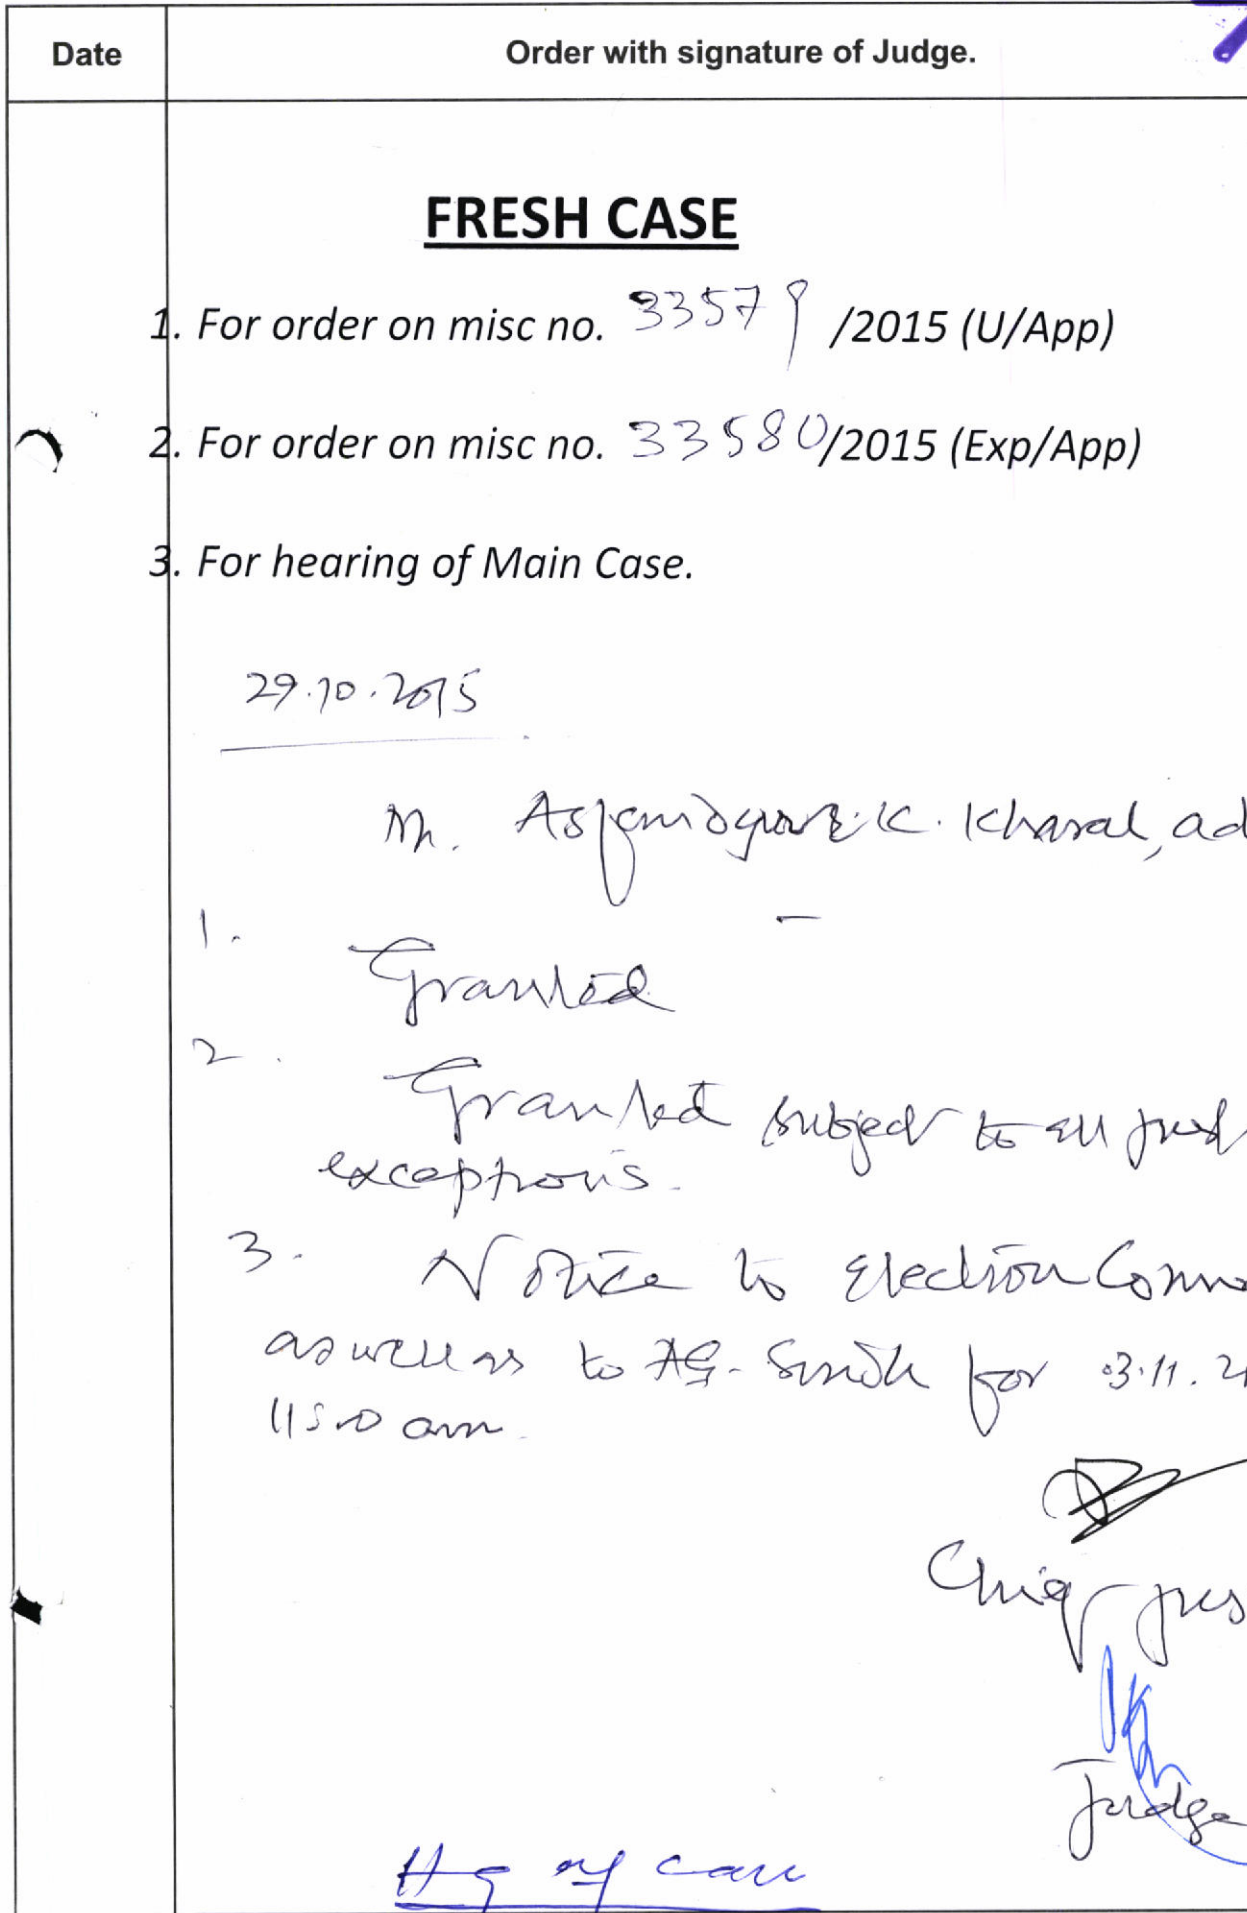 Date Order with signature of Judge.
FRESH CASE
1. For order on misc no. 33579 /2015 (U/App)
2. For order on misc no. 33580/2015 (Exp/App)
3. For hearing of Main Case.
29.10.2015
K. Kharal, ad
1. Granted
2. Granted subject to all just
exceptions.
3. Notice to Election Comm
as well as to AG. Sindh for 3.11. 2
am.
Chief Jus
Judge
Hg of case